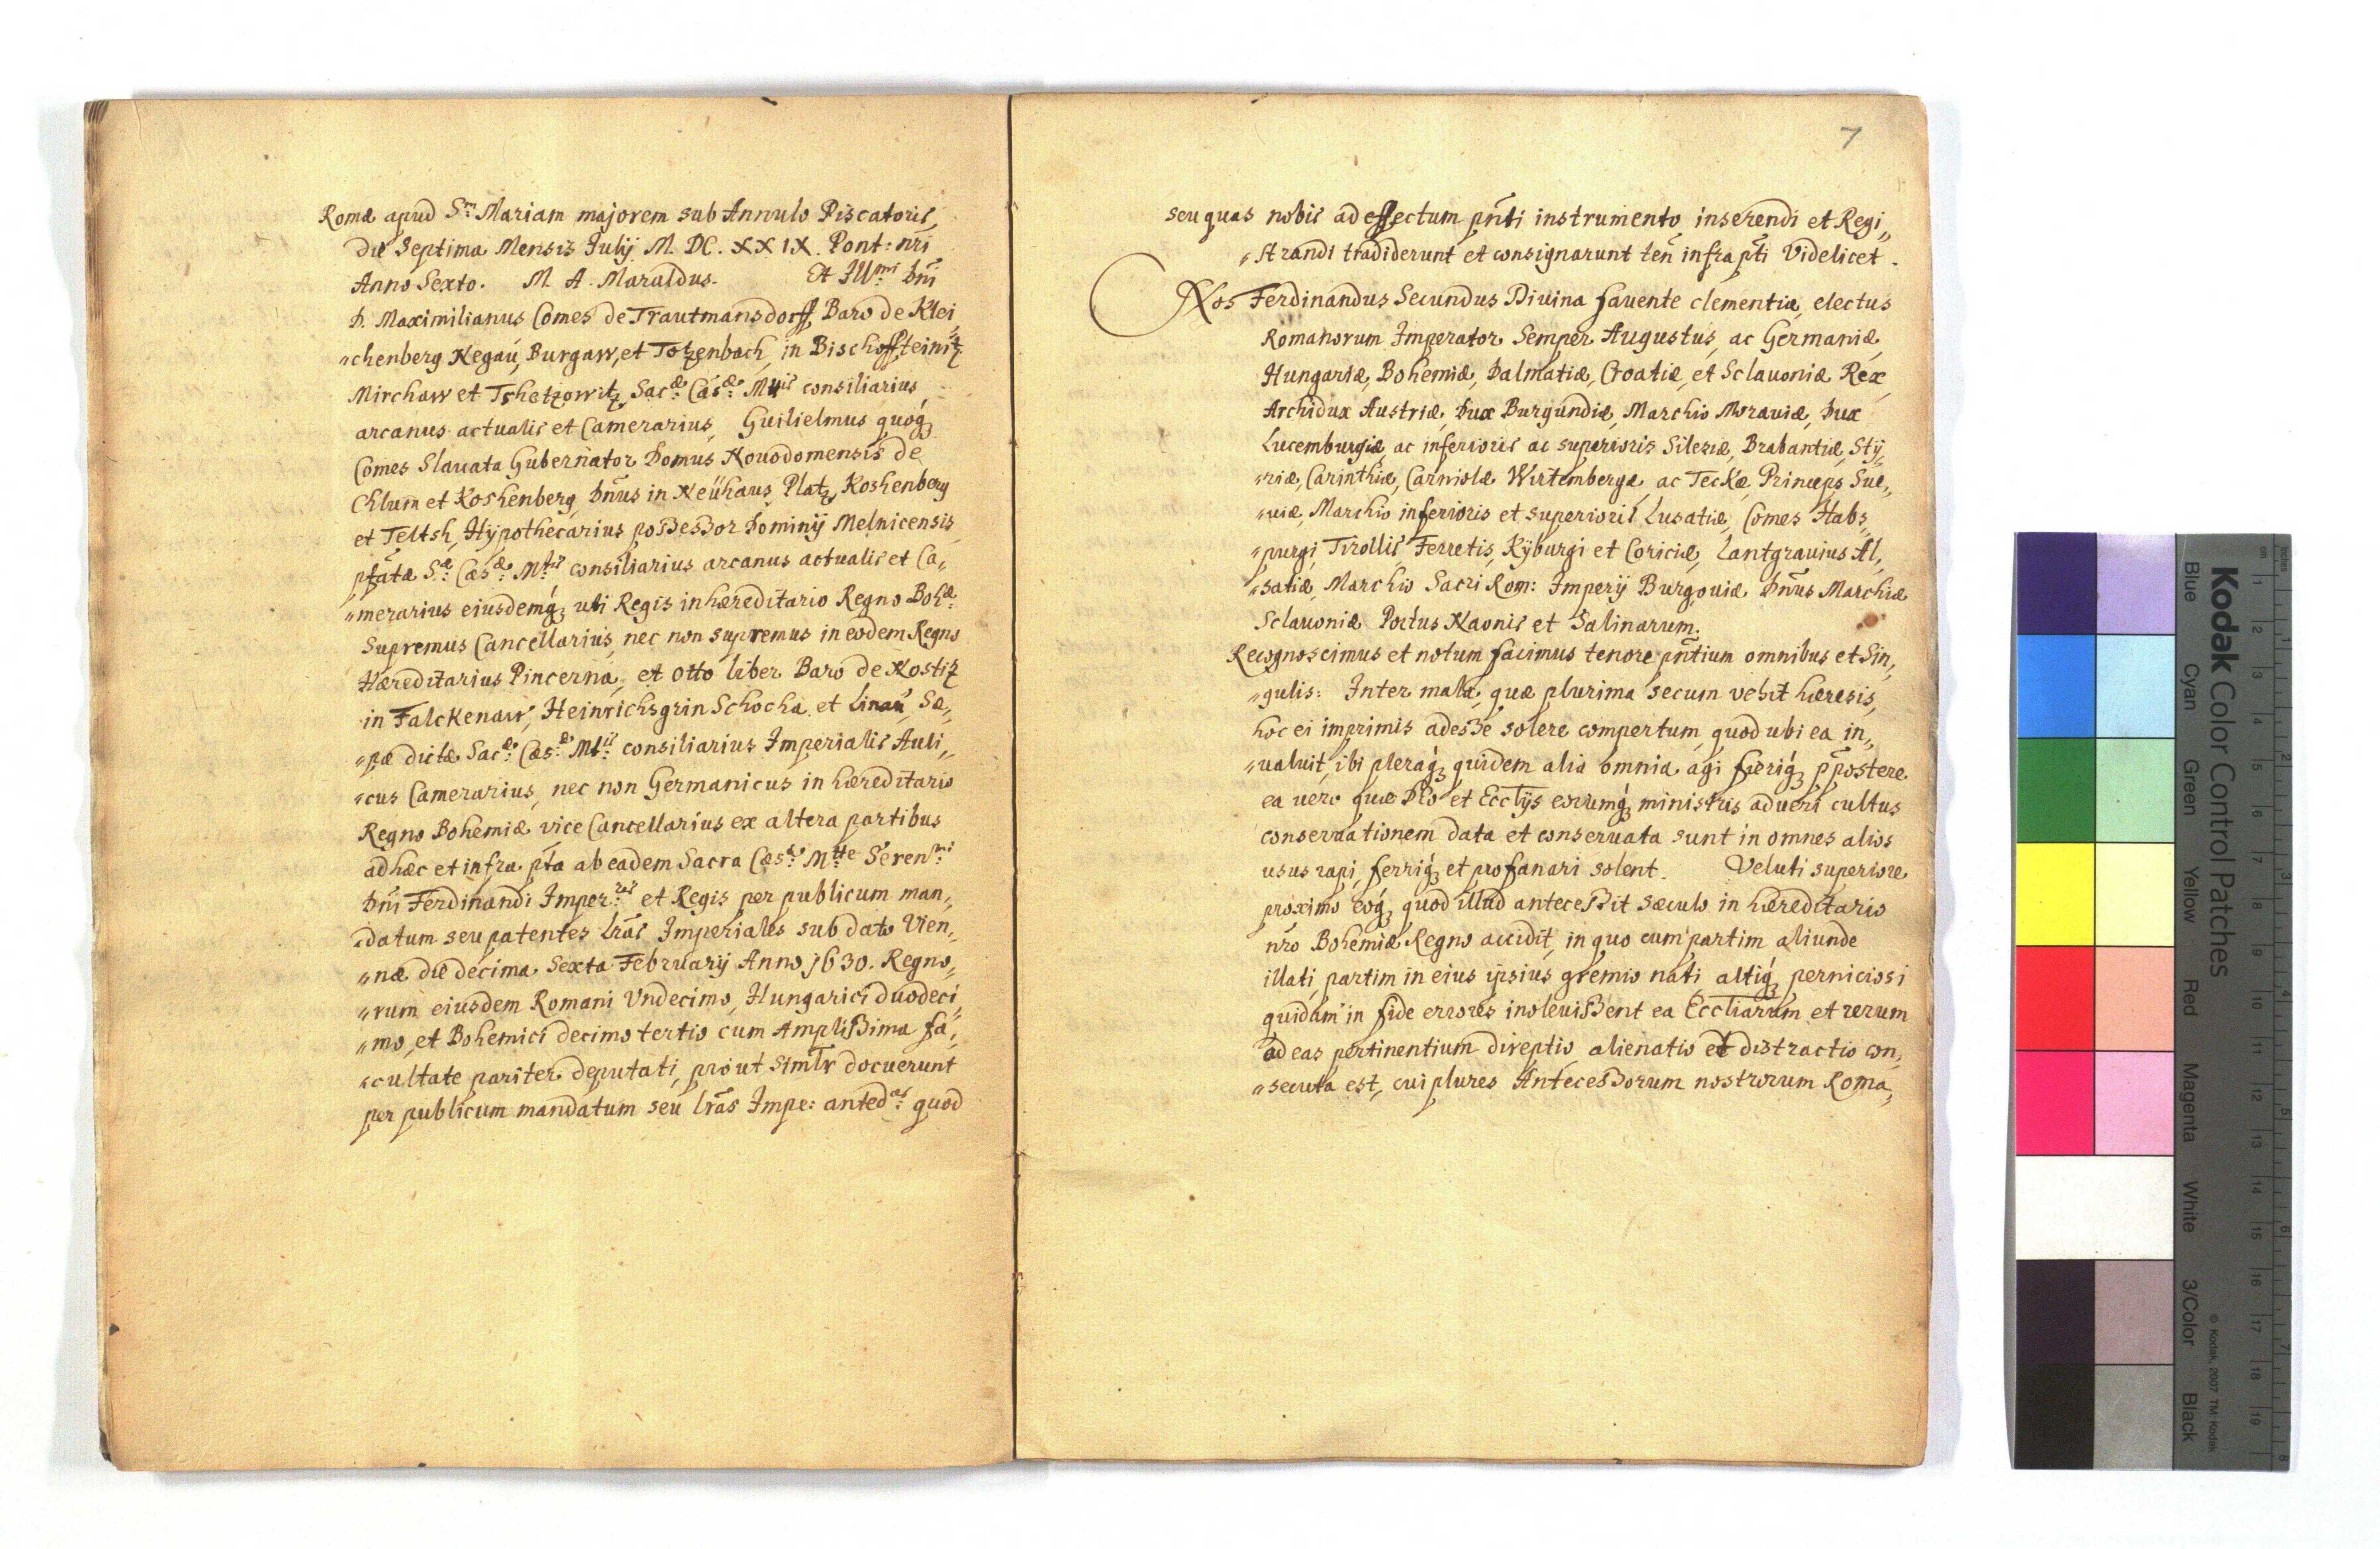 Romæ apud S.m Mariam majorem sub Annulo Piscatoris,
die Septima Mensis Julij M. DC. XXIX. Pont: nri
Anno Sexto. M. A. Maraldus. Et Ill.mi Dni
D. Maximilianus Comes de Trautmansdorff, Baro de Klei„
„chenberg Negaú, Burgaw, et Totzenbach, in Bischoffteinitz
Mirchaw et Tshetzowitz, Sac:æ Cæs:æ Mtis consiliarius
arcanus actualis et Camerarius, Guilielmus quoq3
Comes Slauata Gubernator Domus Nouodomensis de
Chlum et Koshenberg, Dnus in Neühaus, Platz, Koshenberg
et Teltsh, Hypothecarius poßeßor Dominij Melnicensis
pfatæ S:æ Cæs:æ M:tis consiliarius arcanus actualis et Ca„
„merarius eiusdemq3 uti Regis in hæreditario Regno Boh:æ
Supremus Cancellarius, nec non supremus in eodem Regno
Hæreditarius Pincerna, et Otto liber Baro de Nostitz
in Falckenaw, Heinrichsgrin Schocha et Linaú, Sæ„
„pæ dictæ Sac:æ Cæs:æ Mt:is consiliarius Imperialis Auli„
„cus Camerarius, nec non Germanicus in hæreditario
Regno Bohemiæ vice Cancellarius ex altera partibus
ad hæc et infra pta ab eadem Sacra Cæs:a M:tte Seren:mi
Dni Ferdinandi Imper:ris et Regis per publicum man„
„datum seu patentes lras Imperiales sub dato Vien„
„næ die decima Sexta Februarij Anno 1630. Regno„
„rum eiusdem Romani Vndecimo, Hungarici duodeci„
„mo, et Bohemici decimo tertio cum Amplißima fa„
„cultate pariter deputati, prout simlr docuerunt
per publicum mandatum seu lras Impe: anted:as quod
7
seu quas nobis ad effectum pnti instrumento inserendi et Regi„
„strandi tradiderunt et consignarunt ten infra pti Videlicet.
Nos Ferdinandus Secundus Diuina fauente clementia, electus
Romanorum Imperator Semper Augustus, ac Germaniæ,
Hungariæ, Bohemiæ, Dalmatiæ, Croatiæ, et Sclauoniæ Rex
Archidux Austriæ, Dux Burgundiæ, Marchio Morauiæ, Dux
Lucemburgiæ, ac inferioris ac superioris Silesiæ, Brabantiæ, Sty„
„riæ, Carinthiæ, Carniolæ Wirtembergæ, ac Teckæ, Princeps Sue„
„uiæ, Marchio inferioris et superioris Lusatiæ, Comes Habs„
„purgi, Tirollis Ferretis, Kyburgi et Coriciæ, Lantgrauius Al„
„satiæ, Marchio Sacri Rom: Imperij Burgouiæ Dnus Marchiæ
Sclauoniæ Portus Naonis et Salinarum.
Recognoscimus et notum facimus tenore pntium omnibus et Sin„
„gulis: Inter mala, quæ plurima secum vehit hæresis,
hoc ei imprimis adeße solere compertum, quod ubi ea in„
„ualuit, ibi pleraq3 quidem alia omnia agi fieriq3 ppostere
ea vero quæ Deo et Ecclijs eorumq3 ministris ad ueri cultus
conseruationem data et conseruata sunt in omnes alios
usus rapi, ferriq3 et profanari solent. Veluti superiore
proximo eoq3 quod illud anteceßit sæculo in hæreditario
nro Bohemiæ Regno accidit, in quo cum partim aliunde
illati, partim in eius ipsius gremio nati altiq3 perniciosi
quidam in fide errores inoleuißent ea Eccliarum et rerum
ad eas pertinentium direptio alienatio et distractio con„
„secuta est, cui plures Anteceßorum nostrorum Roma„
Kodak Color Control Patches
© Kodak, 2007 TM: Kodak
Blue Cyan Green Yellow Red Magenta White 3/Color Black
inches 1 2 3 4 5 6 7 8
cm 1 2 3 4 5 6 7 8 9 10 11 12 13 14 15 16 17 18 19